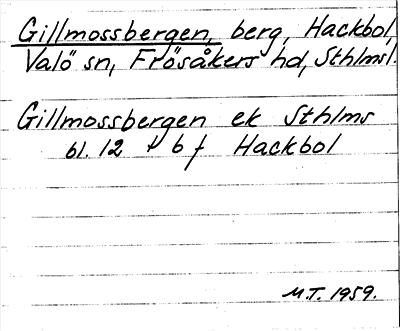 Gillmossbergen, berg, Hackbol,
Valö sn, Frösåkers hd, Sthlmsl.
Gillmossbergen ek Sthlms
bl. 12 t b f Hackbol
M.T. 1959.